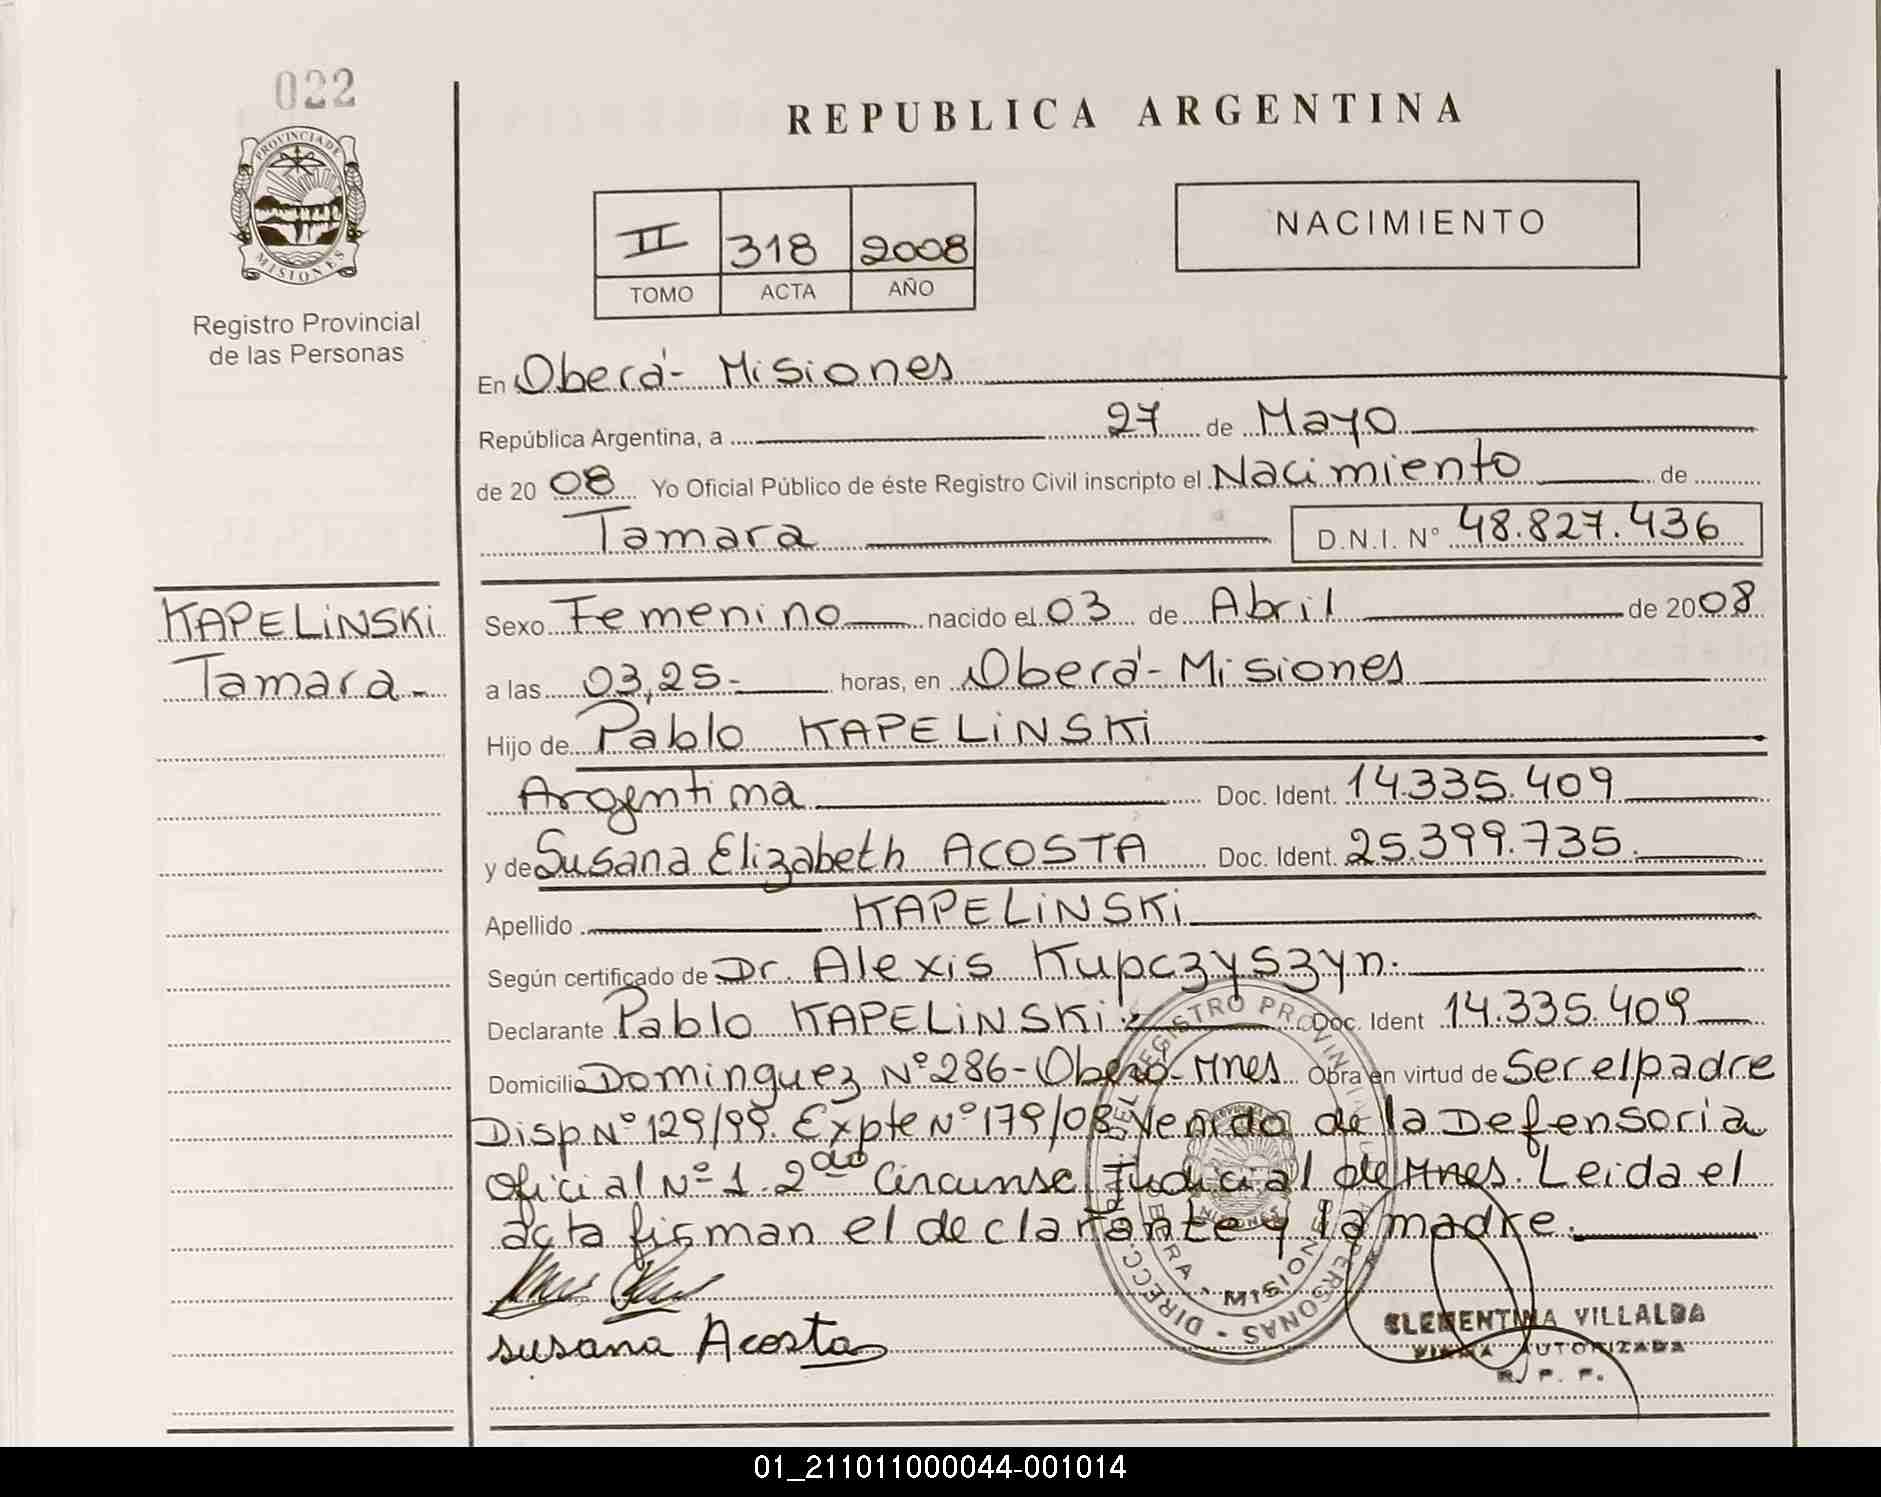 022
PROVINCIA DE
MISIONES
Registro Provincial
de las Personas
REPUBLICA ARGENTINA
II 318 2008
TOMO ACTA AÑO
NACIMIENTO
En Oberá- Misiones
República Argentina, a 27 de Mayo
de 2008 Yo Oficial Público de éste Registro Civil inscripto el Nacimiento de
Tamara D.N.I. Nº 48.827.436
KAPELiNSKi
Tamara-
Sexo Femenino nacido el 03 de Abril de 2008
a las 03,25- horas, en Oberá- Misiones
Hijo de Pablo KAPELiNSKi
Argentina Doc. Ident. 14.335.409
y de Susana Elizabeth ACOSTA Doc. Ident. 25.399.735.
Apellido KAPELiNSKi
Según certificado de Dr. Alexis Kupczyszyn.
Declarante Pablo KAPELiNSKi Doc. Ident 14.335.409
Domicilio Dominguez Nº 286- Oberá- Mnes Obra en virtud de Ser el padre
Disp Nº 129/99. Expte Nº 179/08 Venido de la Defensoria
Oficial Nº 1. 2da Circunsc Judicial de Mnes. Leida el
acta firman el declarante y la madre.
susana Acosta
DIRECC. DEL REGISTRO PROVINCIAL PERSONAS
OBERA - MISIONES
CLEMENTINA VILLALBA
FIRMA AUTORIZADA
R. P. P.
01_211011000044-001014